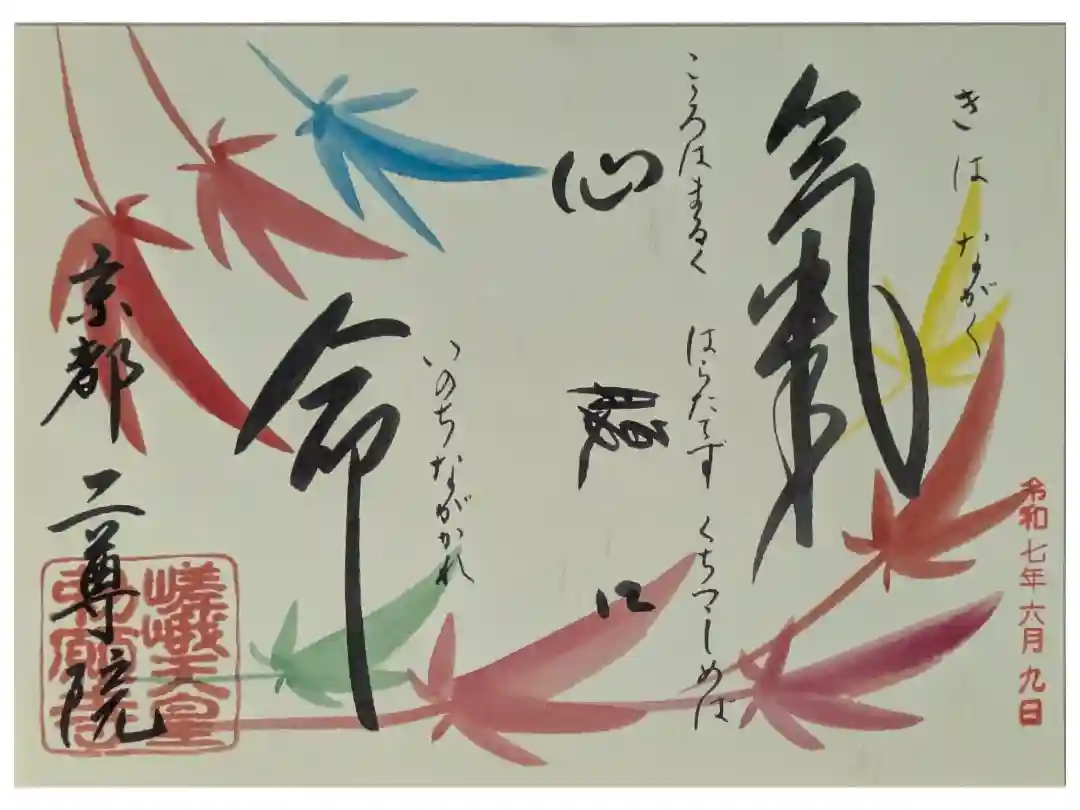 令和七年六月九日
きは ながく
氣
こゝろはまるく はらたてず くちつゝしめば
心 腹 口
いのちながかれ
命
京都 二尊院
嵯峨天皇
勅願寺